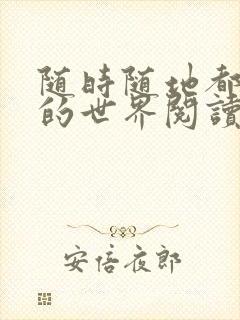 随時随地都
的世界閱讀
安倍夜郎